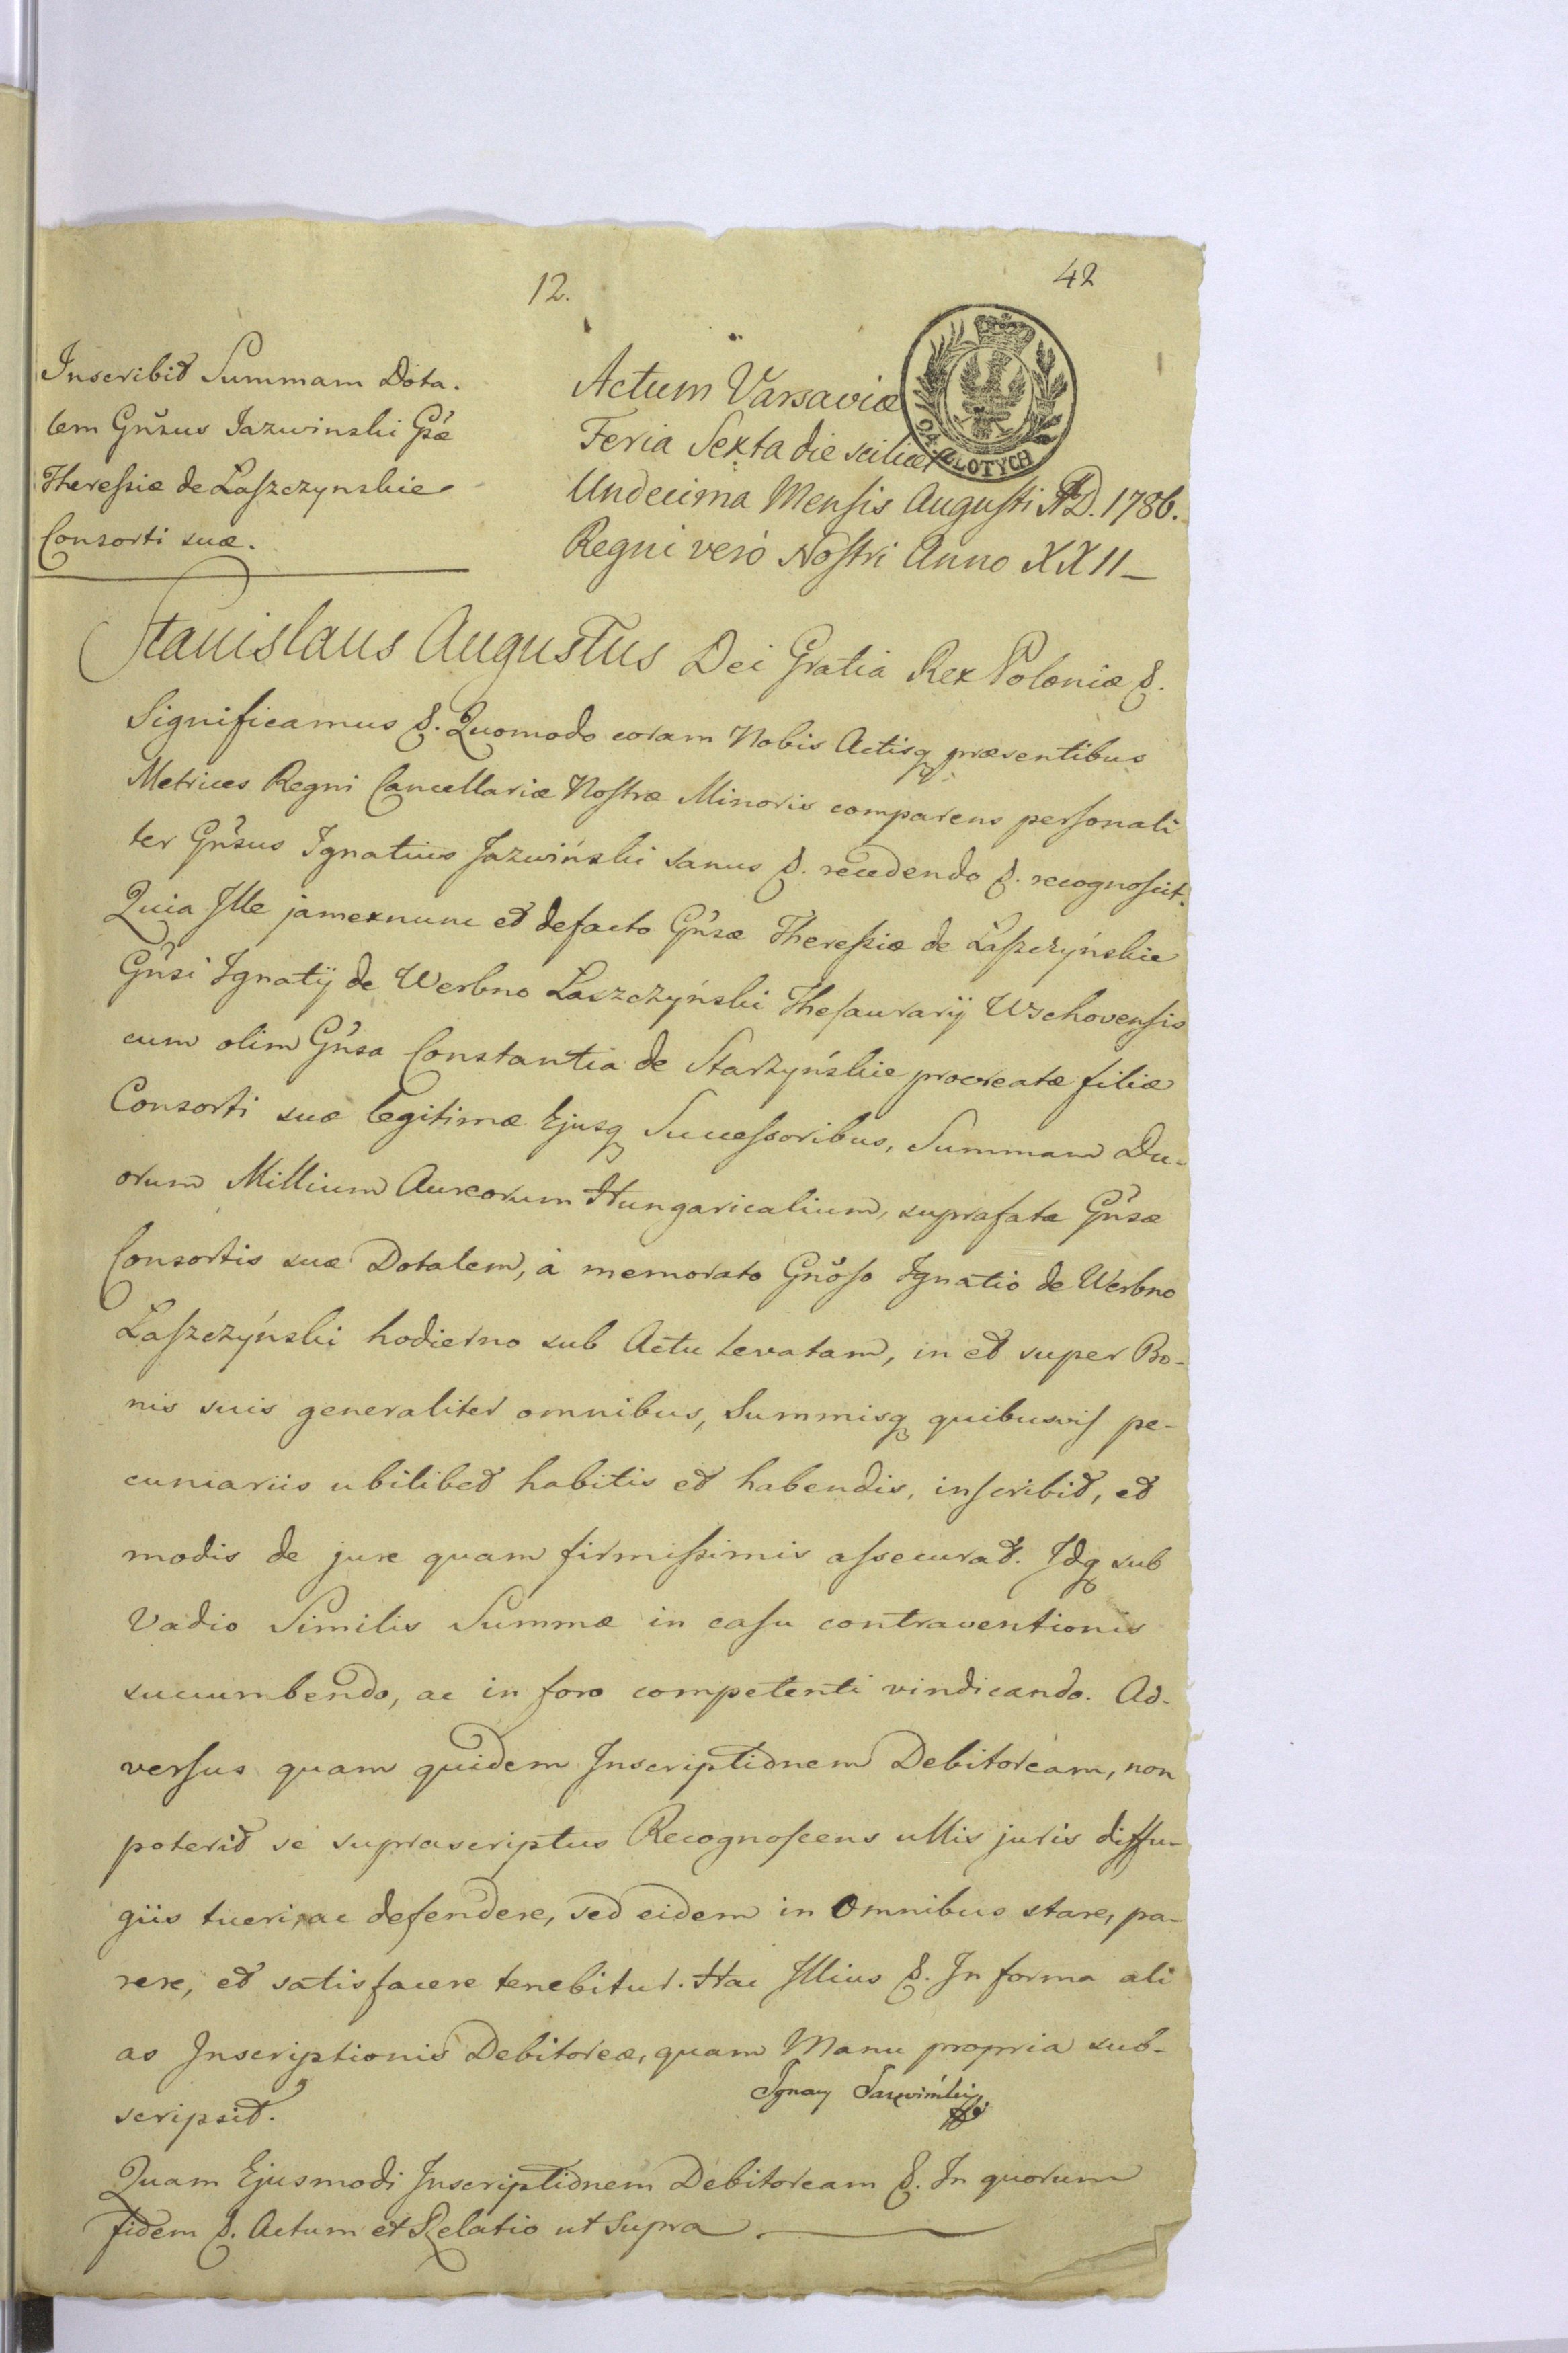 12.
42
Inscribit Summam Dota.
lem Gn̄sus Jazwinski Gsæ
Theressiæ de Laszczynskie
Consorti suæ.
Actum Varsaviæ
Feria Sexta die scilicet
Undecima Mensis Augusti AD. 1786.
Regni verò Nostri Anno XXII_
O4. ZŁOTYCH
Stanislaus Augustus Dei Gratia Rex Poloniæ &.
Significamus &. Quomodo coram Nobis Actisq præsentibus
Metrices Regni Cancellariæ Nostræ Minoris comparens personali
ter Gn̄sus Ignatius Jazwiński sanus &. recedendo &. recognoscit.
Quia Ille jamexnunc et defacto Gn̄sæ Theressiæ de Łaszczyńskie
Gn̄si Ignatij de Werbno Laszczyński Thesaurarij Wschovensis
cum olim Gn̄sa Constantia de Starzyńskie procreatæ filiæ
Consorti suæ legitimæ Ejusq Successoribus, Summam Du-
orum Millium Aureorum Hungaricalium, suprafatæ Gn̄sæ
Consortis suæ Dotalem, à memorato Gnōso Ignatio de Werbno
Łaszczyński hodierno sub Actu levatam, in et super Bo-
nis suis generaliter omnibus, Summisq quibusvis pe-
cuniariis ubilibet habitis et habendis, inscribit, et
modis de jure quam firmissimis assecurat. Idq sub
Vadio Similis Summæ in casu contraventionis
succumbendo, ac in foro competenti vindicando. Ad-
versus quam quidem Inscriptionem Debitoream, non
poterit se suprascriptus Recognoscens ullis juris diffu-
giis tueri, ac defendere, sed eidem in Omnibus stare, pa-
rere, et satisfacere tenebitur. Hac Illius &. In forma ali
as Inscriptionis Debitoreæ, quam Manu propria sub-
scripsit.
Ignacy Jazwiński
Quam Ejusmodi Inscriptionem Debitoream &. In quorum
fidem &. Actum et Relatio ut Supra